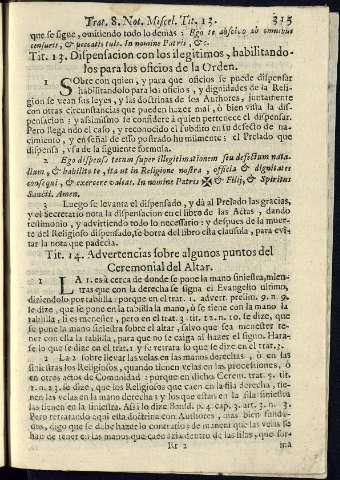 Trat. 8. Not. Miscel. Tit. 13. 315
que se sigue, omitiendo todo lo demàs: Ego te absolvo ab omnibus
censuris, & peccatis tuis. In nomine Patris, &c.
Tit. 13. Dispensacion con los ilegitimos, habilitando-
los para los oficios de la Orden.
1 SObre con quien, y para que oficios se puede dispensar
habilitandolo para los oficios, y dignidades de la Reli-
gion se vean sus leyes, y las doctrinas de sus Authores, juntamente
con otras circunstancias que pueden hazer mal, ò bien vista la dis-
pensacion: y assimismo se considere à quien pertenece el dispensar.
Pero llegando el caso, y reconocido el subdito en su defecto de na-
cimiento, y en señal de esso postrado humilmente: el Prelado que
dispensa, usa de la siguiente formula.
2 Ego dispenso tecum super illegitimationem seu defectum nata-
lium, & habilito te, ita ut in Religione nostra, officia & dignitates
consequi, & exercere valeas. In nomine Patris ✠ & Filij, & Spiritus
Sancti. Amen.
3 Luego se levanta el dispensado, y dà al Prelado las gracias,
y el Secretario nota la dispensacion en el libro de las Actas, dando
testimonio, y advirtiendo todo lo necessario: y despues de la muer-
te del Religioso dispensado, se borra del libro esta clausula, para evi-
tar la nota que padecia.
Tit. 14. Advertencias sobre algunos puntos del
Ceremonial del Altar.
1 LA 1. esà cerca de donde se pone la mano siniestra, mien-
tras que con la derecha se signa el Evangelio ultimo,
diziendolo por tabilla: porque en el trat. 1. advert. prelim. 9. n. 9.
se dize, que se pone en la tabilla la mano, ò se tiene con la mano la
tabilla, si es menester, pero en el trat. 2. tit. 12. n. 10. se dize, que
se pone la mano siniestra sobre el altar, salvo que sea menester te-
ner con ella la tabilla, para que no se caiga al hazer el signo. Hara-
se lo que se dize en el trat. 1. y se retrata lo que se dize en el trat. 2.
2 La 2 sobre llevar las velas en las manos derechas, ò en las
siniestras los Religiosos, quando tienen velas en las processiones, ò
en otros actos de Comunidad: porque en dicho Cerem. trat. 3. tit.
1. n. 23. se dize, que los Religiosos que caen en la fila derecha, tie-
nen las velas en la mano derecha; y los que estàn en la fila siniestra
las tienen en la siniestra. Assi lo dize p. 4. cap. 3. art. 3. n. 3.
Pero retratando aqui esta doctrina con Authores, mas bien funda-
dos, digo que se debe hazer lo contrario: de manera que las velas se
han de tener en las manos que caen azia dentro de las filas, que for-
Rr 2 ma